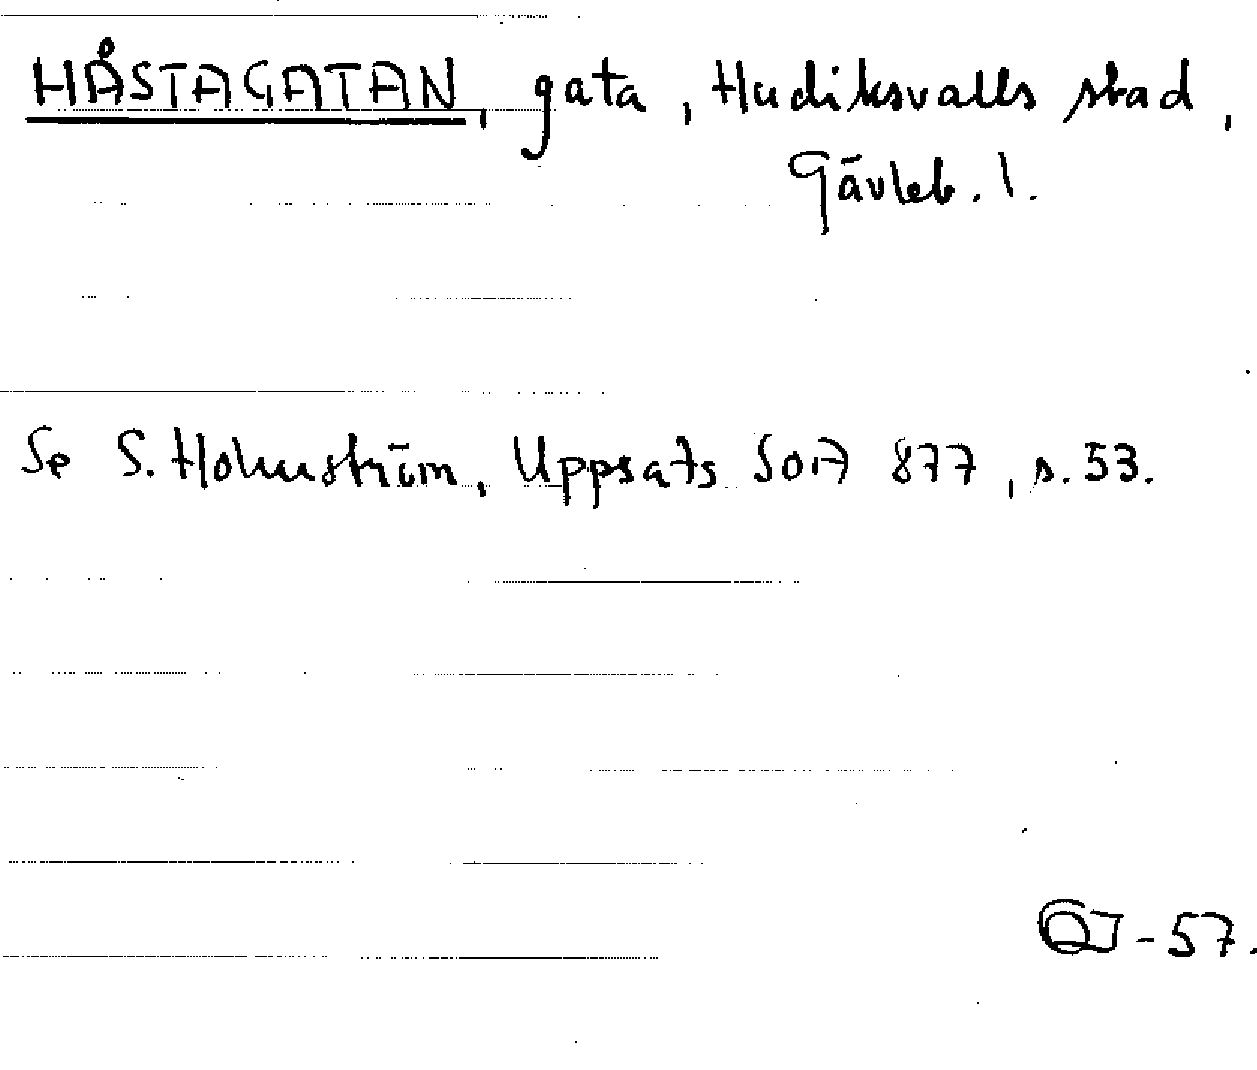 HÅSTAGATAN, gata, Hudiksvalls stad,
Gävleb. l.
Se S. Holmström, Uppsats SOA 877, s. 53.
-57.